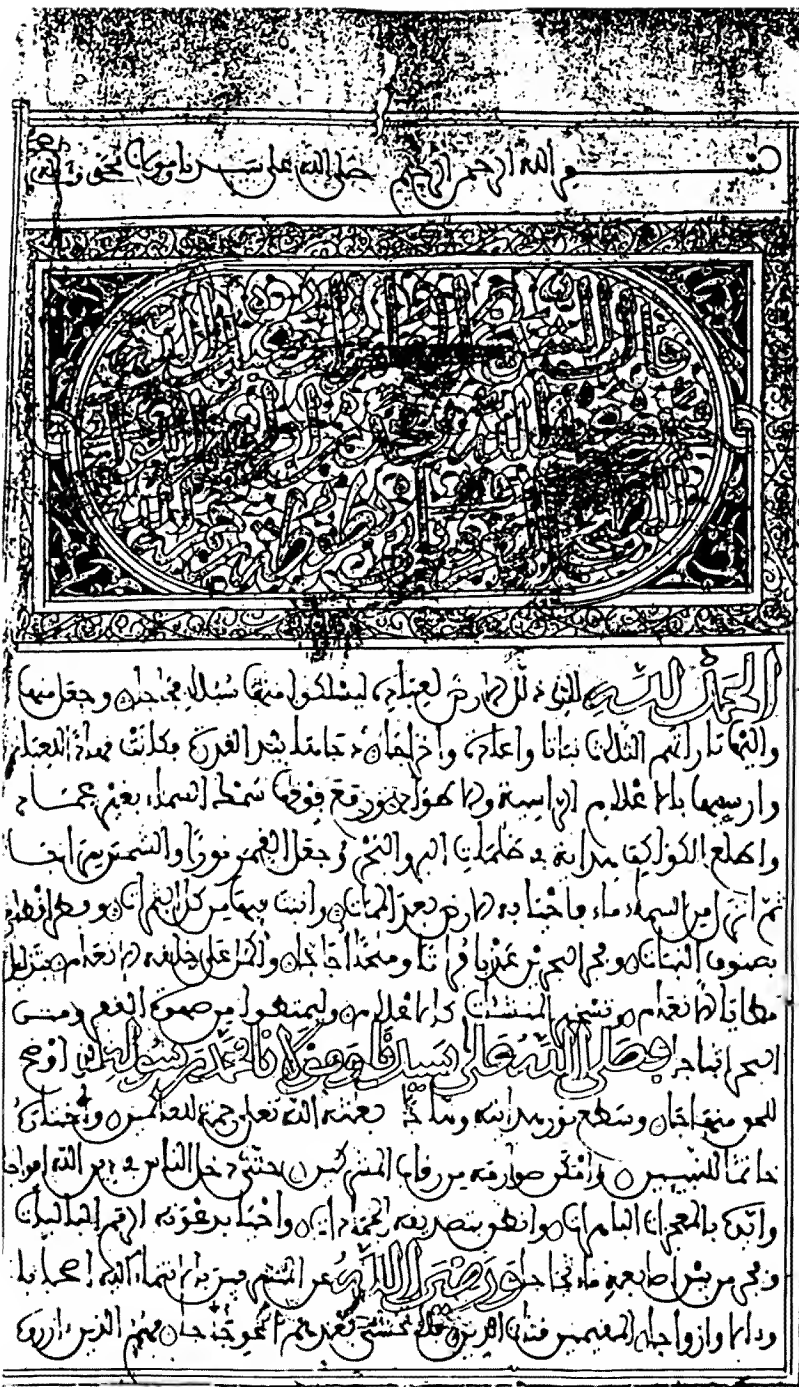 بسم الله الرحمن الرحيم صلى الله على سيدنا ومولانا محمد وآله
الحمد لله الذي ذلل الارض لعباده ليسلكوا منها سبلا فجاجا وجعل منها
واليها تاراتهم الثلاث نباتا واعادة واخراجا دحاها بيد القدرة فكانت مهادا للعباد
وارسيها بالاعلام الراسية والاطواد ورفع فوقها سمك السماء بغير عماد
واطلع الكواكب هداية في ظلمات البر والبحر وجعل القمر نورا والشمس سراجا
ثم انزل من السماء ماء فاحيا به الارض بعد الممات وانبت فيها من كل الثمرات وفطر اقطارها
بصنوف النبات وفجر البحرين عذبا فراتا وملحا اجاجا واكمل على خليقته الانعام بتذليل
مطايا الانعام وتسخير المنشئات كالاعلام وليمتطوا من صهوة القفر ومتن
البحر اثباجا وصلى الله على سيدنا ومولانا محمد رسوله الذي اوضح
للخلق منهاجا وسطع نور هدايته وهاجا بعثه الله تعلى رحمة للعالمين واختاره
خاتما للنبيين وامكن صوارمه من رقاب المشركين حتى دخل الناس في دين الله افواجا
وايده بالمعجزات الباهرات وانطق بتصديقه الجمادات واحيا بدعوته الرمم الباليات
وفجر من بين اصابعه ماء ثجاجا ورضي الله عن المتشرفين بالانتماء اليه اصحابا
وءالا وازواجا المقيمين قناة الدين فلا تخشى بعدهم اعوجاجا فهم الذين ءازروه